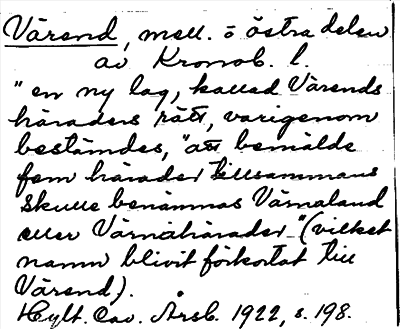 Värend, mell. o östra delen
av Kronob. l.
"en ny lag, kallad Värends
härads rätt, varigenom
bestämdes, "att bemälde
fem härader tillsammans
skulle benämnas Värnaland
eller Värnahärader" (vilket
namn blivit förkortat till
Värend).
Hylt. Cav. Årsb. 1922, s. 198.